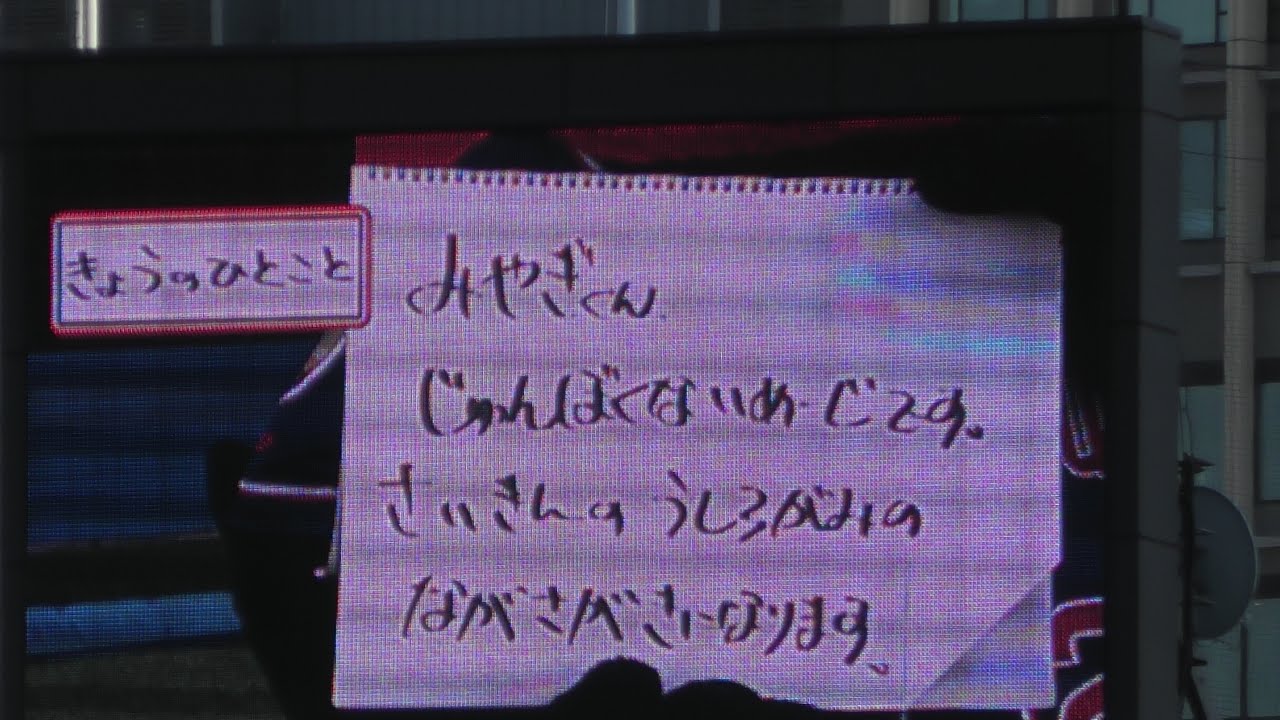 きょうのひとこと
みやぎくん
じゅんぼくないめーじです。
さいきんのうしろがみの
ながさがきになります。